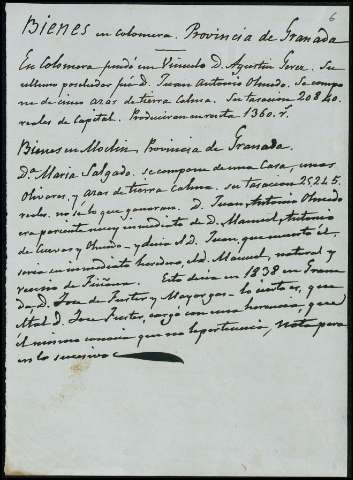 6
Bienes en Colomera. Provincia de Granada
En Colomera fundó un Vinculo D. Agustin Perez. Su
ultimo poseedor fué D. Juan Antonio Olmedo. Se compo
ne de cinco azas de tierra Calma. Su tasacion 20840.
reales de Capital. Producirá en renta 1360. r.
Bienes en Moclin, Provincia de Granada.
Dª Maria Salgado. se compone de una Casa, unas
Olivares, y azas de tierra Calma. su tasacion 25245.
reales. no se lo que ganaran. D. Juan, Antonio Olmedo
era pariente muy inmediato de D. Manuel, Antonio
de Cuevas y Olmedo - y decia el D. Juan, que muerto él,
seria su inmediato heredero, el D. Manuel, natural y
vecino de Fiñana. Esto decia en 1838 en Grana
da, D. Jose de Fuster y Mayorgas - lo cierto es, que
el tal D. Jose Fuster, cargó con una herencia, que
el mismo conocia que no le pertenecia, Nota para
en lo sucesivo